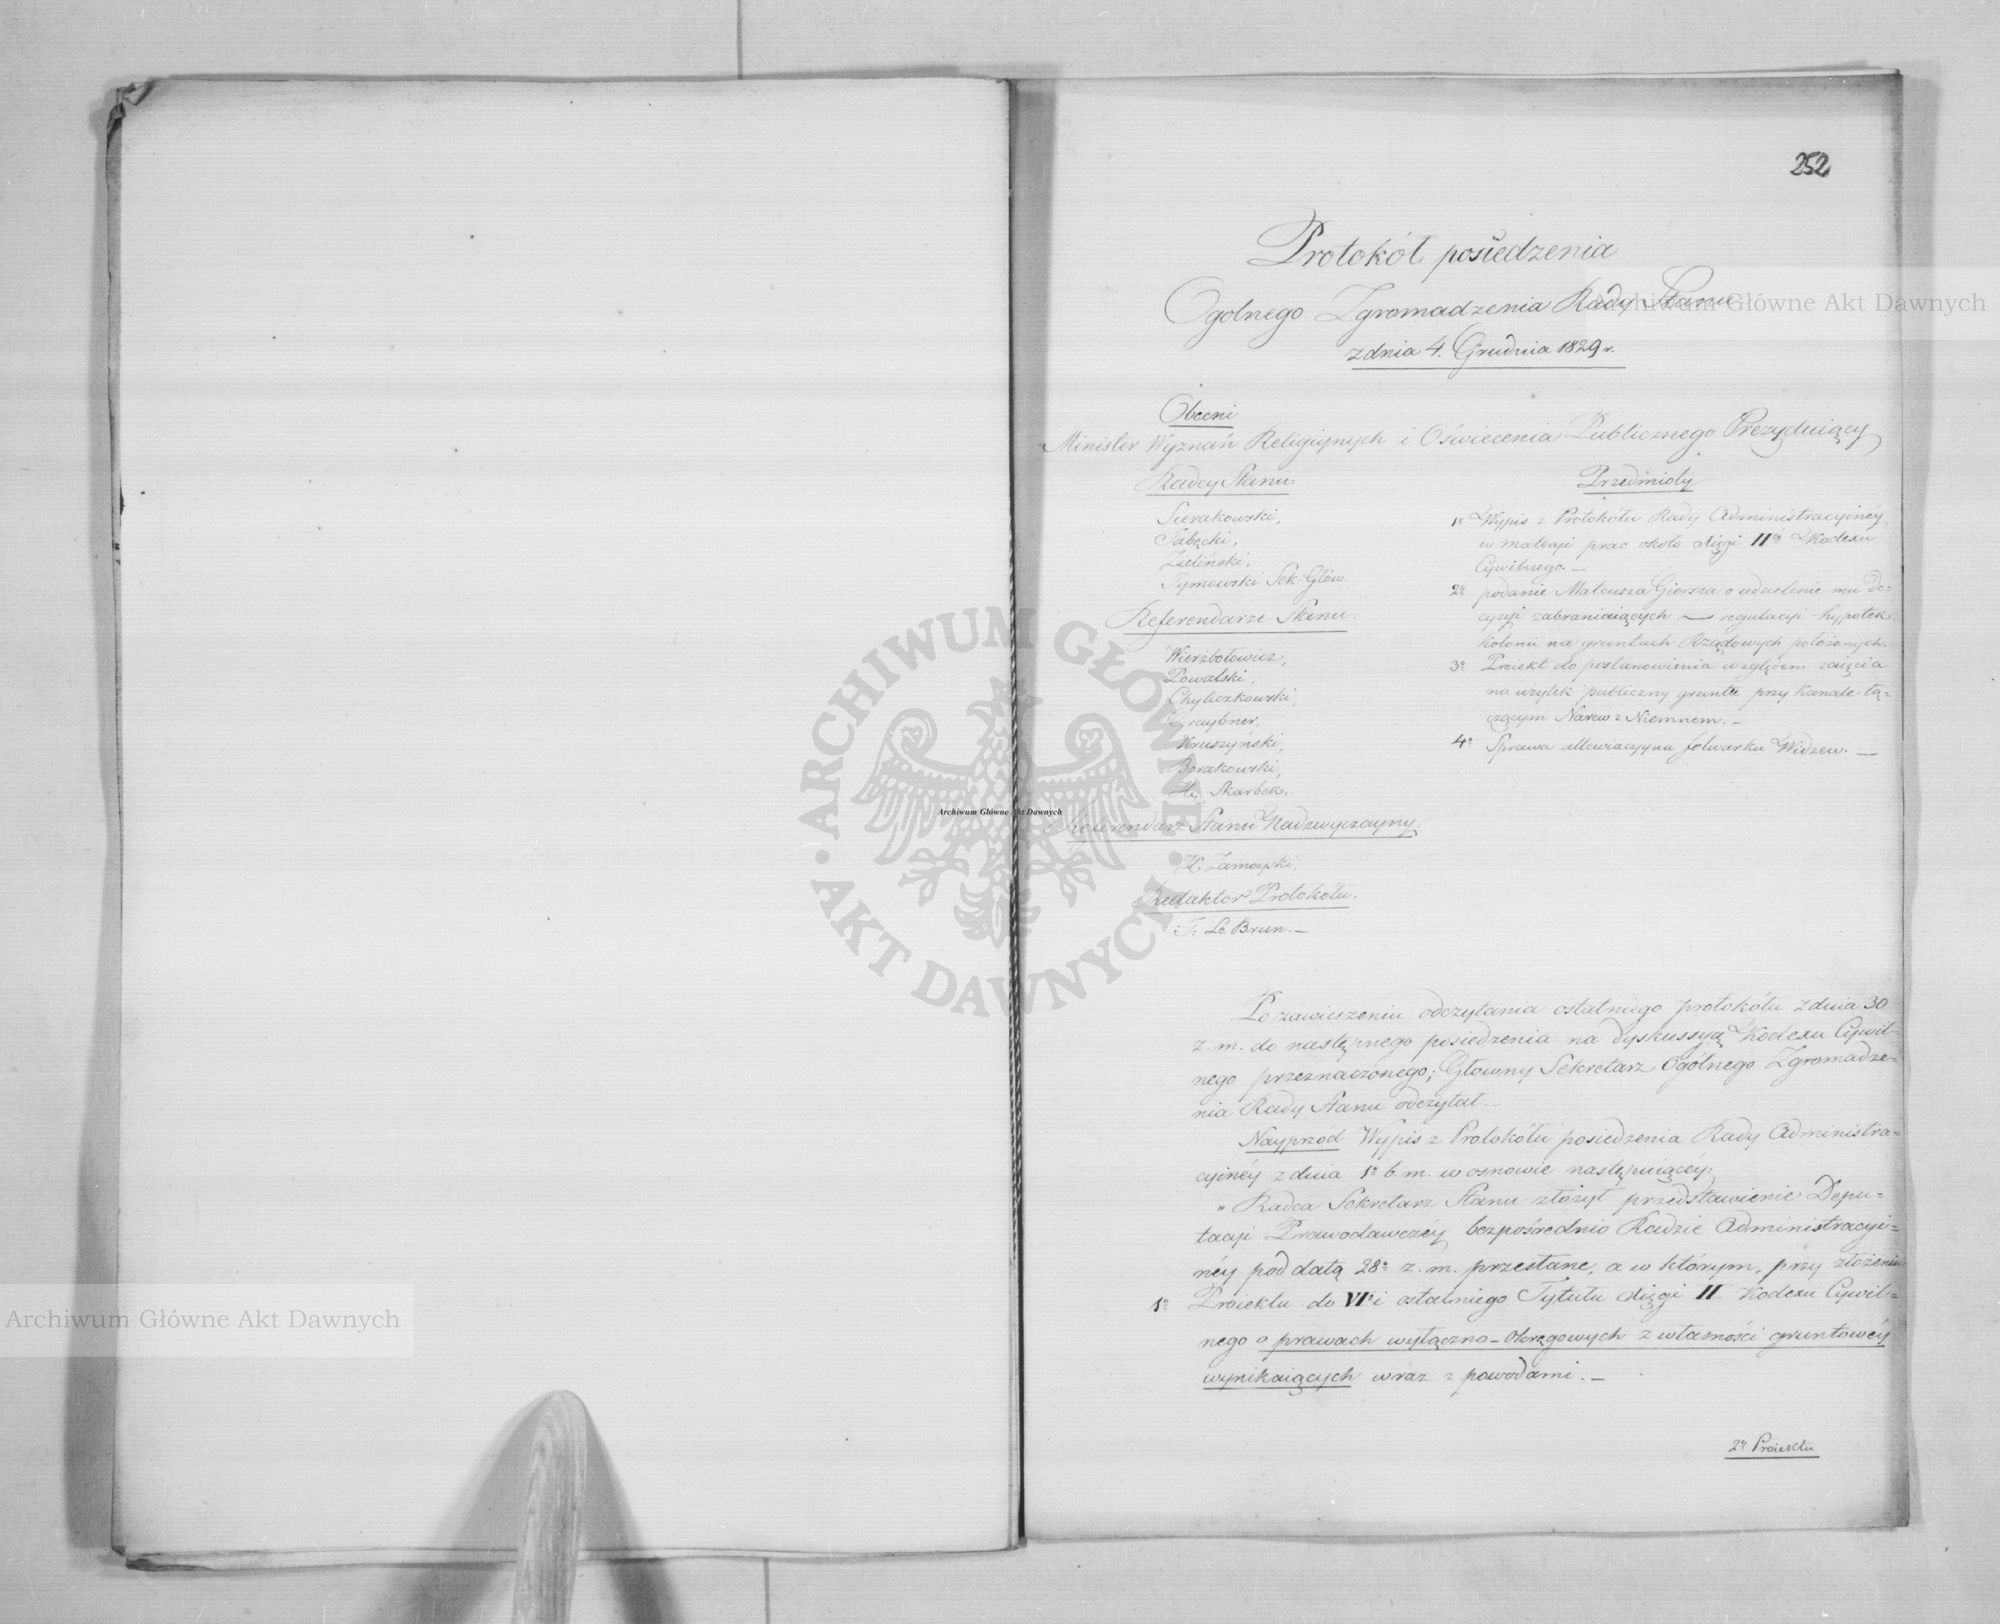 252
Protokół posiedzenia
Ogolnego Zgromadzenia Rady Stanu
z dnia 4. Grudnia 1829 r.
Obecni
Minister Wyznań Religiynych i Oświecenia Publicznego Prezyduiący
Radcy Stanu.
Sierakowski,
Tabęcki,
Zieliński,
Tymowski Sek. Głów.
Referendarze Stanu.
Wierzbołowicz,
Powalski,
Chyliczkowski,
Graybner,
Kruszyński,
Borakowski,
Hr. Skarbek.
Referendarz Stanu Nadzwyczayny.
H. Zamoyski.
Redaktor Protokółu.
T. Le Brun. —
Przedmioty
1o Wypis z Protokółu Rady Administracyinéy
w materyi prac około Xięgi IIéy Kodexu
Cywilnego. —
2o podanie Mateusza Giersza o udzielenie mu de=
cyzyi zabraniaiących — regulacyi hypotek
Kolonii na gruntach Rządowych położonych.
3o Proiekt do postanowienia względem zaięcia
na użytek publiczny gruntu przy Kanale łą=
czącym Narew z Niemnem. —
4o Sprawa allewiacyyna folwarku Widzew. —
Po zawieszeniu odczytania ostatniego protokółu z dnia 30
z. m. do następnego posiedzenia na dyskussyą Kodexu Cywil=
nego przeznaczonego; Główny Sekretarz Ogólnego Zgromadze=
nia Rady Stanu odczytał. —
Nayprzód Wypis z Protokółu posiedzenia Rady Administra=
cyinéy z dnia 1o b. m. w osnowie następuiącéy:
„ Radca Sekretarz Stanu złożył przedstawienie Depu=
tacyi Prawodawczéy bezpośrednio Radzie Administracyi=
néy pod datą 28o z. m. przesłane, a w którym, przy złożeniu
1o Proiektu do VIo i ostatniego Tytułu Xięgi II Kodexu Cywil=
nego o prawach wyłączno-okręgowych z własności gruntowéy
wynikaiących wraz z powodami. —
2o Proiektu
Archiwum Główne Akt Dawnych
Archiwum Główne Akt Dawnych
Archiwum Główne Akt Dawnych
ARCHIWUM GŁÓWNE · AKT DAWNYCH ·